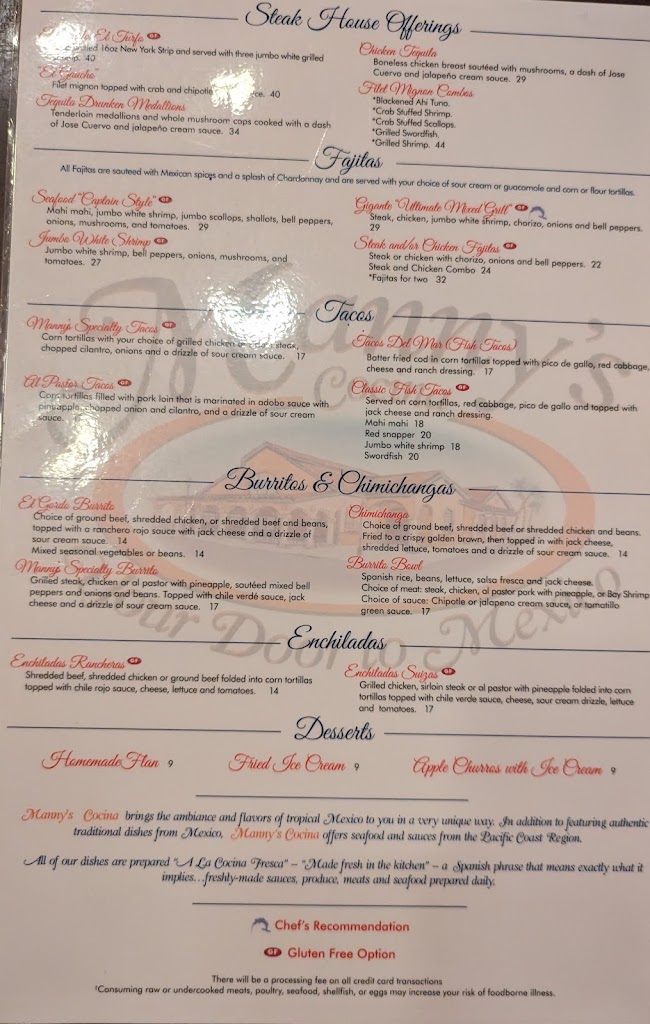 Steak House Offerings
El Turfo GF
16oz New York Strip and served with three jumbo white grilled
40
"El Gaucho"
Filet mignon topped with crab and chipotle 40
Tequila Drunken Medallions
Tenderloin medallions and whole mushroom caps cooked with a dash
of Jose Cuervo and jalapeño cream sauce. 34
Chicken Tequila
Boneless chicken breast sautéed with mushrooms, a dash of Jose
Cuervo and jalapeño cream sauce. 29
Filet Mignon Combos
*Blackened Ahi Tuna.
*Crab Stuffed Shrimp.
*Crab Stuffed Scallops.
*Grilled Swordfish.
*Grilled Shrimp. 44
Fajitas
All Fajitas are sauteed with Mexican spices and a splash of Chardonnay and are served with your choice of sour cream or guacamole and corn or flour tortillas.
Seafood "Captain Style" GF
Mahi mahi, jumbo white shrimp, jumbo scallops, shallots, bell peppers,
onions, mushrooms, and tomatoes. 29
Jumbo White Shrimp GF
Jumbo white shrimp, bell peppers, onions, mushrooms, and
tomatoes. 27
Gigante "Ultimate Mixed Grill" GF
Steak, chicken, jumbo white shrimp, chorizo, onions and bell peppers.
29
Steak and/or Chicken Fajitas GF
Steak or chicken with chorizo, onions and bell peppers. 22
Steak and Chicken Combo 24
*Fajitas for two 32
Tacos
Manny's Specialty Tacos GF
Corn tortillas with your choice of grilled chicken steak,
chopped cilantro, onions and a drizzle of sour cream sauce. 17
Al Pastor Tacos GF
Corn tortillas filled with pork loin that is marinated in adobo sauce with
pineapple, chopped onion and cilantro, and a drizzle of sour cream
sauce.
Tacos Del Mar (Fish Tacos)
Batter fried cod in corn tortillas topped with pico de gallo, red cabbage,
cheese and ranch dressing. 17
Classic Fish Tacos GF
Served on corn tortillas, red cabbage, pico de gallo and topped with
jack cheese and ranch dressing.
Mahi mahi 18
Red snapper 20
Jumbo white shrimp 18
Swordfish 20
Burritos & Chimichangas
El Gordo Burrito
Choice of ground beef, shredded chicken, or shredded beef and beans,
topped with a ranchero rojo sauce with jack cheese and a drizzle of
sour cream sauce. 14
Mixed seasonal vegetables or beans. 14
Manny's Specialty Burrito
Grilled steak, chicken or al pastor with pineapple, sautéed mixed bell
peppers and onions and beans. Topped with chile verdé sauce, jack
cheese and a drizzle of sour cream sauce. 17
Chimichanga
Choice of ground beef, shredded beef or shredded chicken and beans.
Fried to a crispy golden brown, then topped in with jack cheese,
shredded lettuce, tomatoes and a drizzle of sour cream sauce. 14
Burrito Bowl
Spanish rice, beans, lettuce, salsa fresca and jack cheese.
Choice of meat: steak, chicken, al pastor pork with pineapple, or Bay Shrimp
Choice of sauce: Chipotle or jalapeno cream sauce, or tomatillo
green sauce. 17
Enchiladas
Enchiladas Rancheras GF
Shredded beef, shredded chicken or ground beef folded into corn tortillas
topped with chile rojo sauce, cheese, lettuce and tomatoes. 14
Enchiladas Suizas GF
Grilled chicken, sirloin steak or al pastor with pineapple folded into corn
tortillas topped with chile verde sauce, cheese, sour cream drizzle, lettuce
and tomatoes. 17
Desserts
Homemade Flan 9
Fried Ice Cream 9
Apple Churros with Ice Cream 9
Manny's Cocina brings the ambiance and flavors of tropical Mexico to you in a very unique way. In addition to featuring authentic
traditional dishes from Mexico, Manny's Cocina offers seafood and sauces from the Pacific Coast Region.
All of our dishes are prepared "A La Cocina Fresca" – "Made fresh in the kitchen" – a Spanish phrase that means exactly what it
implies...freshly-made sauces, produce, meats and seafood prepared daily.
Chef's Recommendation
GF Gluten Free Option
There will be a processing fee on all credit card transactions
†Consuming raw or undercooked meats, poultry, seafood, shellfish, or eggs may increase your risk of foodborne illness.
Manny's
Your Door to Mexico